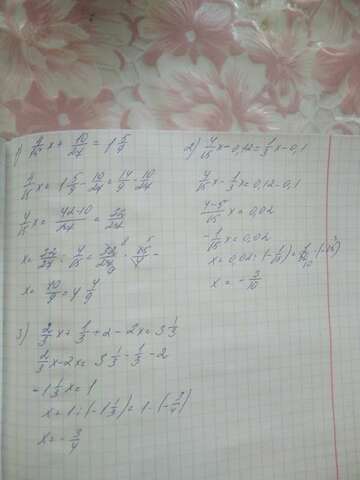 1) 4/15 x + 10/27 = 1 5/9
4/15 x = 1 5/9 - 10/27 = 14/9 - 10/27
4/15 x = 42-10/27 = 32/27
x = 32/27 : 4/15 = 32/27 · 15/4 =
x = 40/9 = 4 4/9
2) 4/15 x - 0,12 = 1/3 x - 0,1
4/15 x - 1/3 x = 0,12 - 0,1
4-5/15 x = 0,02
-1/15 x = 0,02
x = 0,02 : (-1/15) =
x = - 3/10
3) 2/3 x + 1/3 + 2 - 2x = 3 1/3
2/3 x - 2x = 3 1/3 - 1/3 - 2
- 1 1/3 x = 1
x = 1 : (-1 1/3) = 1 · (- 3/4)
x = - 3/4